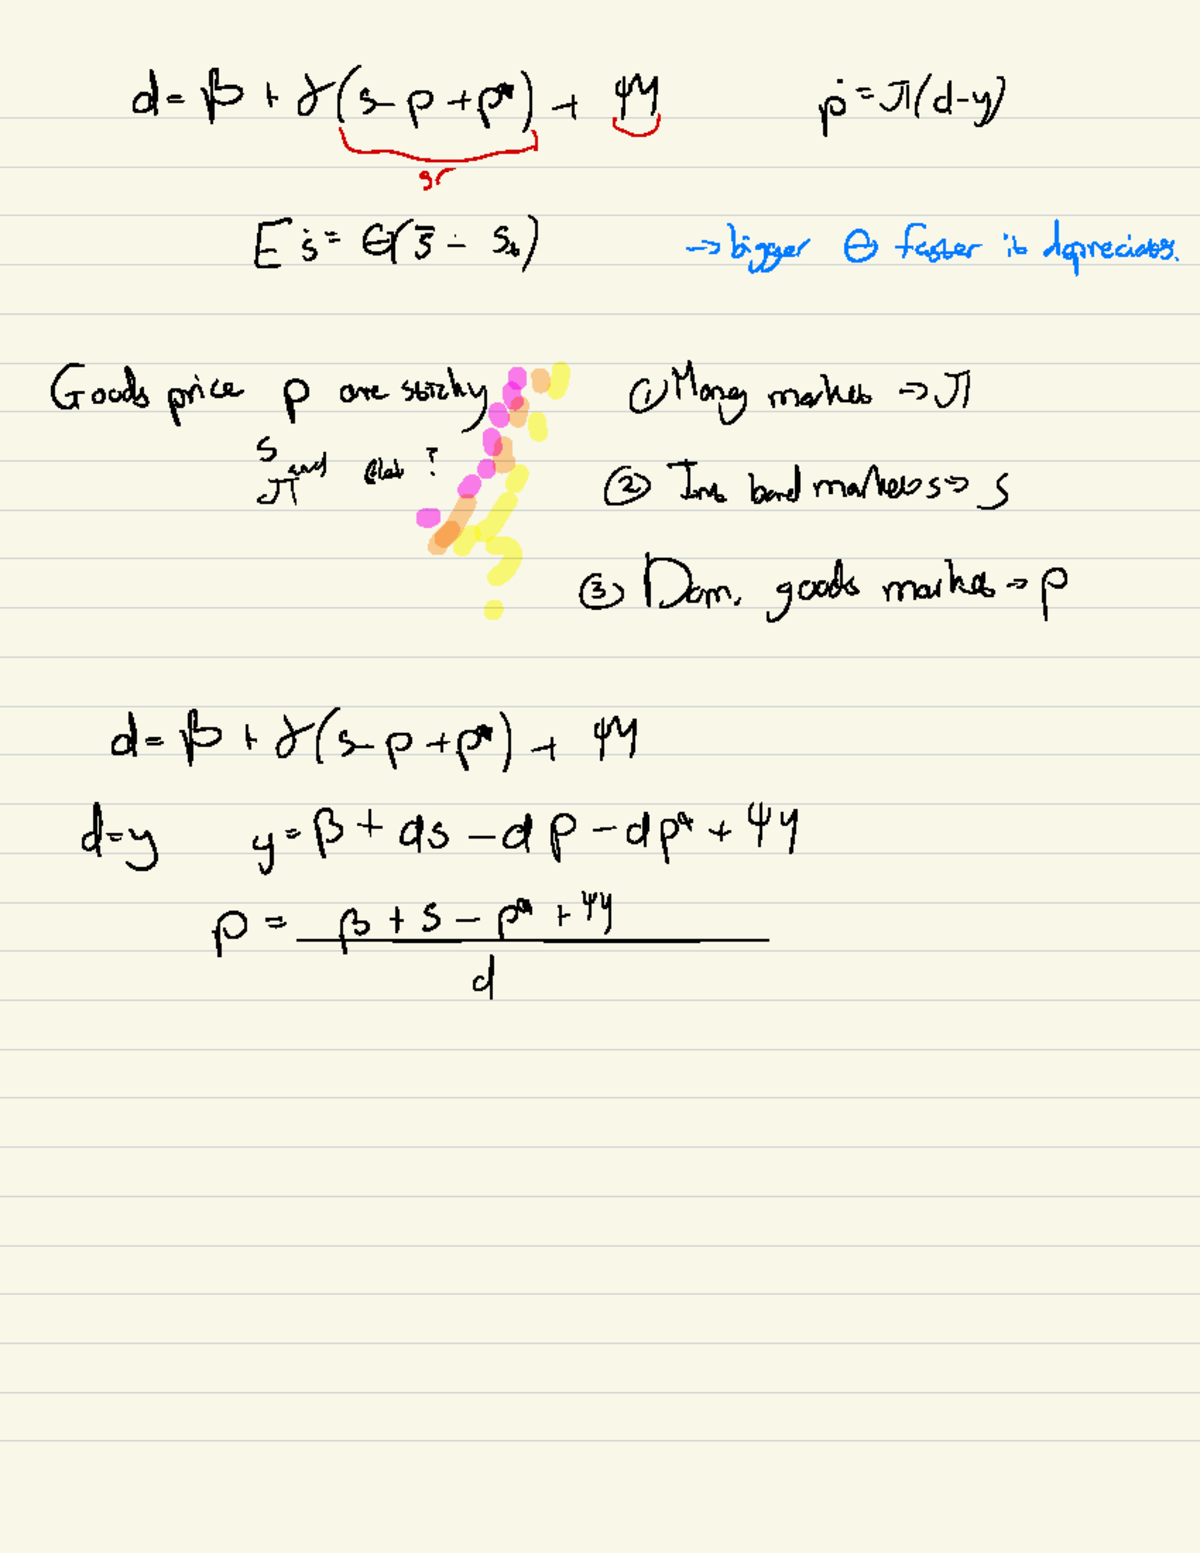 d = β + γ(s - p + p*) + ψy ṗ = π(d-y)
sr
E ṡ = Θ(s̄ - sₜ) → bigger Θ faster it depreciates.
Goods price p are sticky ① Money market → π
s
and ?
π
② Int. bond markets → s
③ Dom. goods market → p
d = β + γ(s - p + p*) + ψy
d=y y = β + ds - dp - dp* + ψy
p = β + s - p* + ψy
d